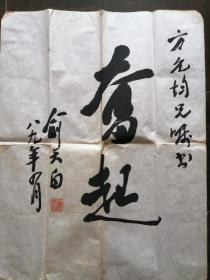 方允均兄嘱书
奋起
俞天白
八九年十月